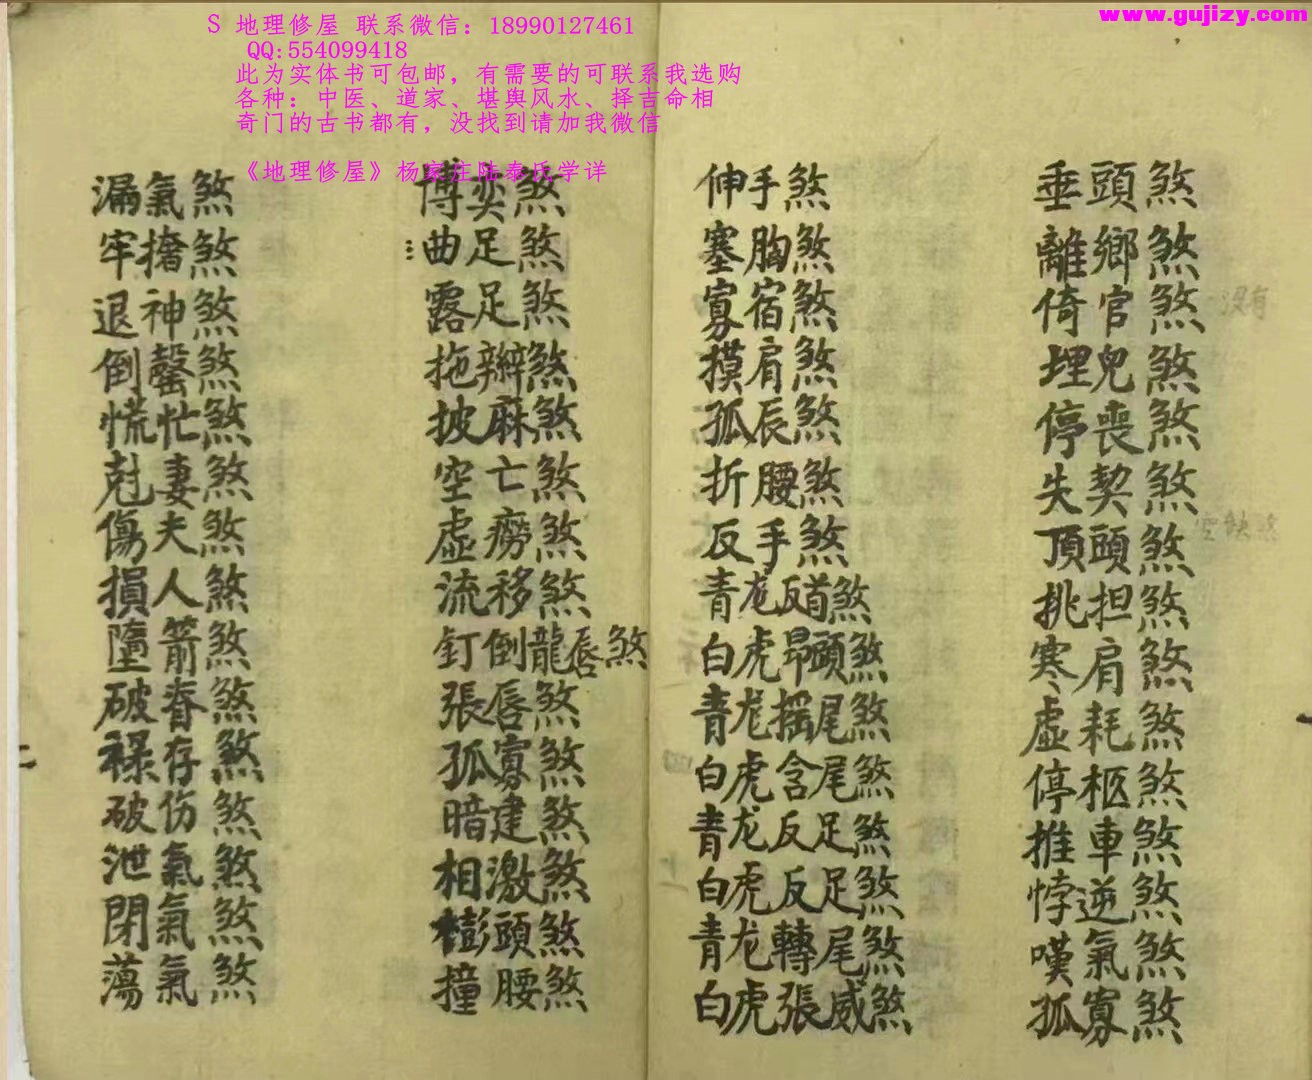 www.gujizy.com
S 地理修屋 联系微信：18990127461
QQ:554099418
此为实体书可包邮，有需要的可联系我选购
各种：中医、道家、堪舆风水、择吉命相
奇门的古书都有，没找到请加我微信
《地理修屋》杨家庄陆泰氏学详
垂頭煞
離鄉煞
倚官煞
埋兒煞
停喪煞
失契煞
頂頭煞
挑担煞
寒肩煞
虛耗煞
停柩煞
推車煞
悖逆煞
嘆氣煞
孤寡煞
没有
伸手煞
塞胸煞
寡宿煞
摸肩煞
孤辰煞
折腰煞
反手煞
青龙反首煞
白虎昂頭煞
青龙摇尾煞
白虎含尾煞
青龙反足煞
白虎反足煞
青龙轉尾煞
白虎張威煞
博奕煞
曲足煞
露足煞
拖辮煞
披麻煞
空亡煞
虛癆煞
流移煞
釘倒龍唇煞
張唇煞
孤寡煞
暗建煞
相激煞
頭煞
撞腰煞
漏氣煞
牢煞
退神煞
倒罄煞
慌忙煞
尅妻煞
傷夫煞
損人煞
墮箭煞
破脊煞
禄存煞
破伤煞
泄氣煞
閉氣煞
蕩氣煞
二